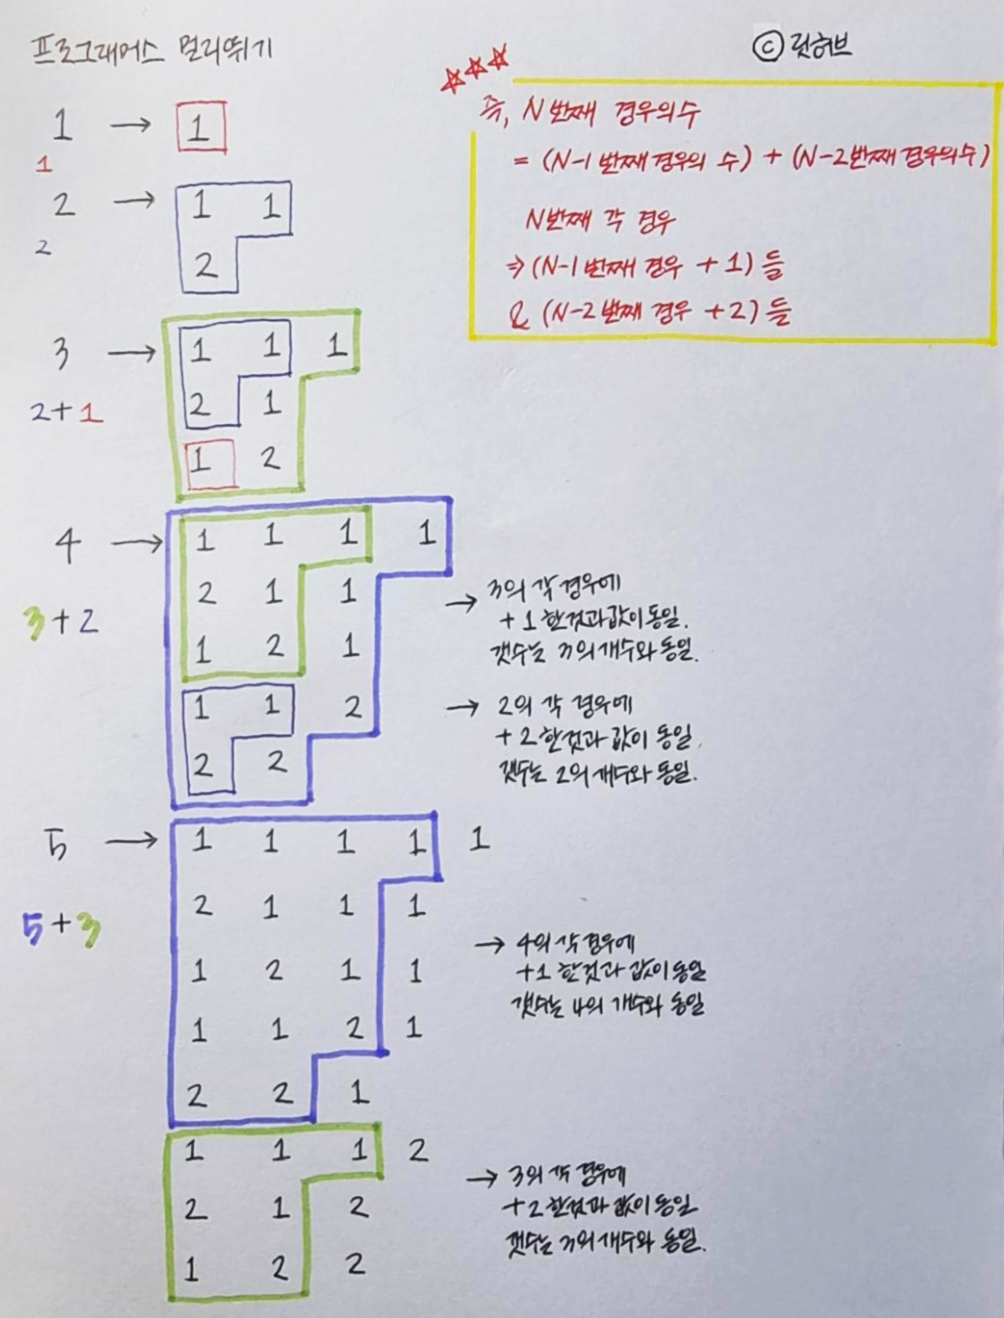 프로그래머스 멀리뛰기
ⓒ 릿허브
☆☆☆
즉, N번째 경우의수
= (N-1번째 경우의 수) + (N-2번째 경우의수)
N번째 각 경우
⇒ (N-1번째 경우 + 1) 들
& (N-2번째 경우 +2) 들
1 → 1
1
2 → 1 1
2 2
3 → 1 1 1
2+1 2 1
1 2
4 → 1 1 1 1
2 1 1
3+2 1 2 1
1 1 2
2 2
→ 3의 각 경우에
+ 1 한것과 값이 동일.
갯수는 3의 개수와 동일.
→ 2의 각 경우에
+ 2 한것과 값이 동일.
갯수는 2의 개수와 동일.
5 → 1 1 1 1 1
5+3 2 1 1 1
1 2 1 1
1 1 2 1
2 2 1
→ 4의 각 경우에
+1 한것과 값이 동일
갯수는 4의 개수와 동일
1 1 1 2
2 1 2
1 2 2
→ 3의 각 경우에
+2 한것과 값이 동일
갯수는 3의 개수와 동일.